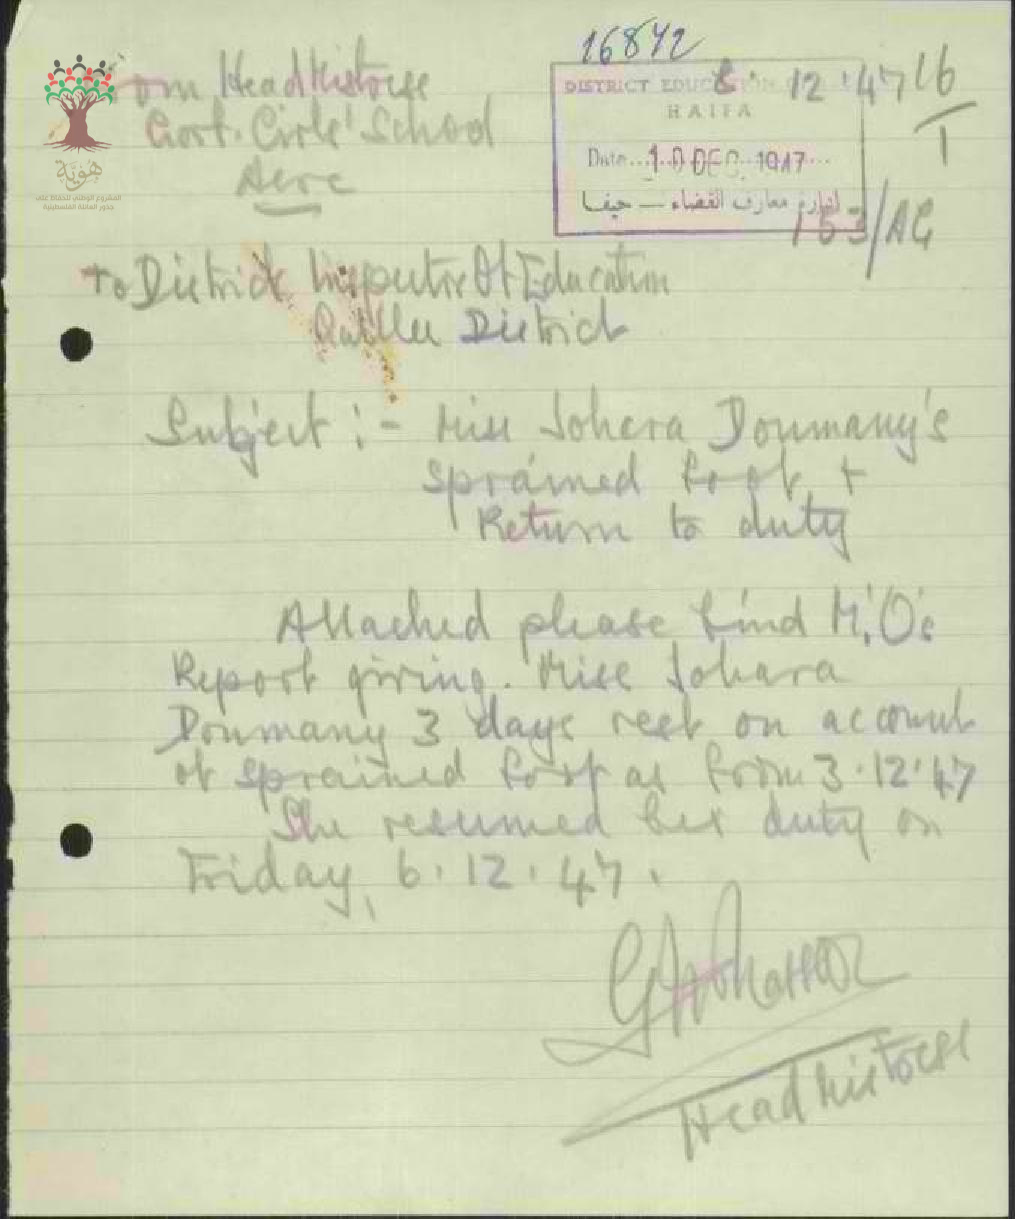 16842
8. 12. 47
16/1
DISTRICT EDUCATION
HAIFA
Date...10 DEC. 1947...
إدارة معارف القضاء — حيفا
153/AG
From Headmistress
Govt. Girls' School
Acre
هوية
المشروع الوطني للحفاظ على
جذور العائلة الفلسطينية
To District Inspector Of Education
Galilee District
Subject :- Miss Johara Doumany's
Sprained foot +
Return to duty
Attached please find M.O's
Report giving. Miss Johara
Doumany 3 days rest on account
of sprained foot as from 3.12.47
She resumed her duty on
Friday, 6.12.47.
Headmistress